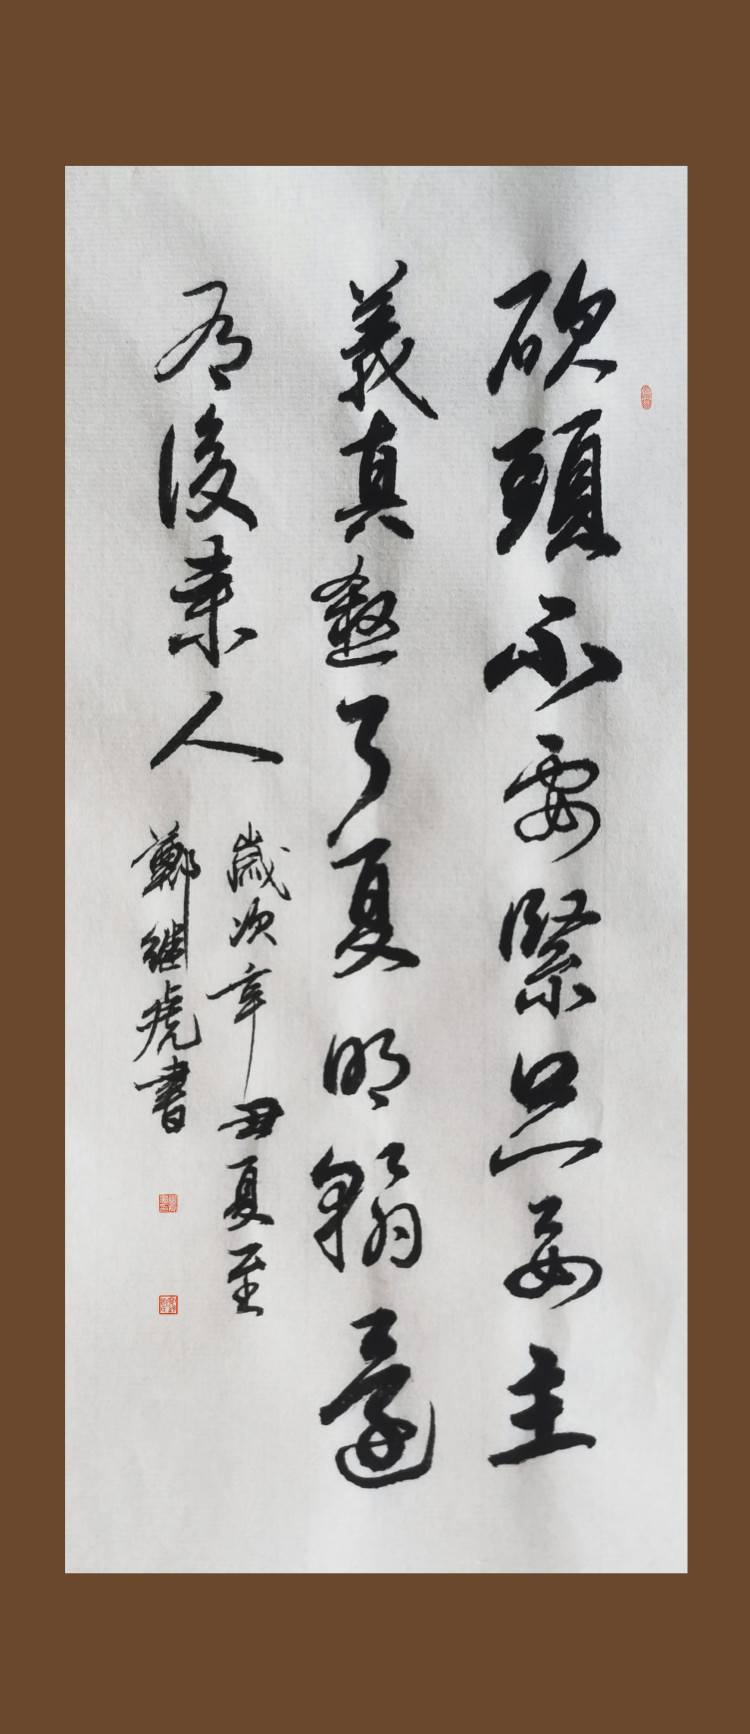 砍頭不要緊只要主
義真殺了夏明翰還
有後来人
歲次辛丑夏至
鄭继虎書